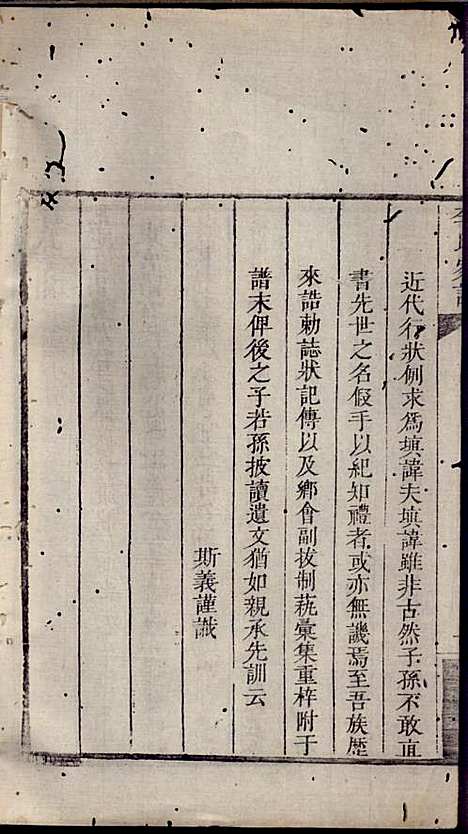 近代行狀例求爲填諱夫填諱雖非古然子孫不敢直
書先世之名假手以紀知禮者或亦無譏焉至吾族歷
來誥勅誌狀記傳以及鄉會副拔制蓺彙集重梓附于
譜末俾後之子若孫披讀遺文猶如親承先訓云
斯義謹識